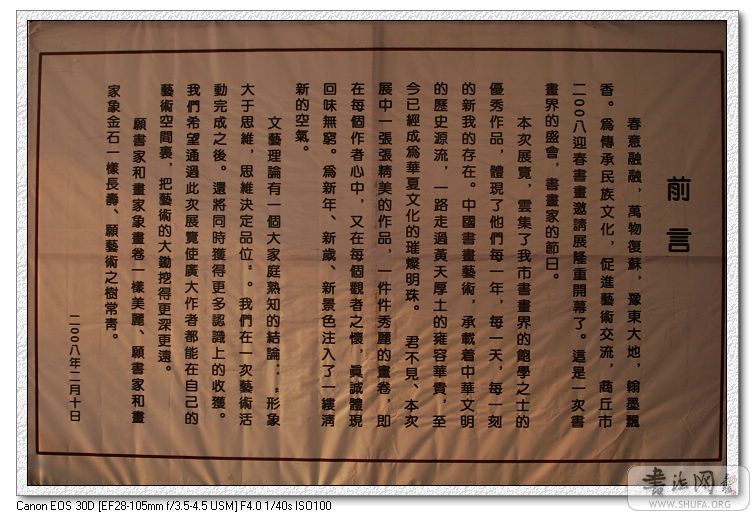 前言
春意融融，萬物復蘇，豫東大地，翰墨飄
香。爲傳承民族文化，促進藝術交流，商丘市
二00八迎春書畫邀請展隆重開幕了。這是一次書
畫界的盛會，書畫家的節日。
本次展覽，雲集了我市書畫界的飽學之士的
優秀作品，體現了他們每一年，每一天，每一刻
的新我的存在。中國書畫藝術，承載着中華文明
的歷史源流，一路走過黃天厚土的雍容華貴，至
今已經成爲華夏文化的璀燦明珠。 君不見、本次
展中一張張精美的作品，一件件秀麗的畫卷，即
在每個作者心中，又在每個觀者之懷，眞誠體現
回味無窮。爲新年、新歲、新景色注入了一縷淸
新的空氣。
文藝理論有一個大家庭熟知的結論："形象
大于思維，思維決定品位"。我們在一次藝術活
動完成之後。還將同時獲得更多認識上的收獲。
我們希望通過此次展覽使廣大作者都能在自己的
藝術空間裏，把藝術的大鋤挖得更深更遠。
願書家和畫家象畫卷一樣美麗、願書家和畫
家象金石一樣長壽、願藝術之樹常靑。
二00八年二月十日
书法网
WWW.SHUFA.ORG
Canon EOS 30D [EF28-105mm f/3.5-4.5 USM] F4.0 1/40s ISO100